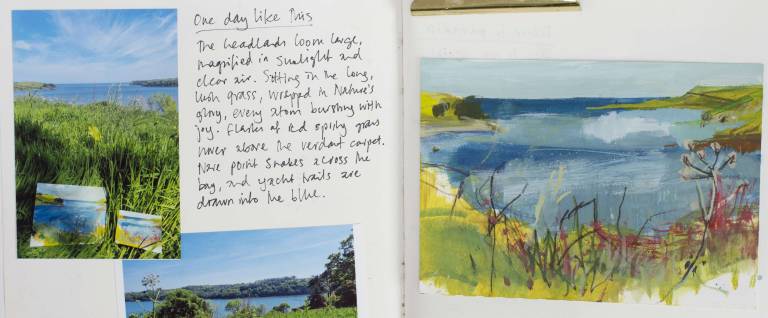 One day like this
The headlands loom large,
magnified in sunlight and
clear air. Sitting in the long,
lush grass, wrapped in Nature's
glory, every atom bursting with
joy. Flashes of red spiky grass
hover above the verdant carpet.
Nare point snakes across the
bay, and yacht trails are
drawn into the blue.